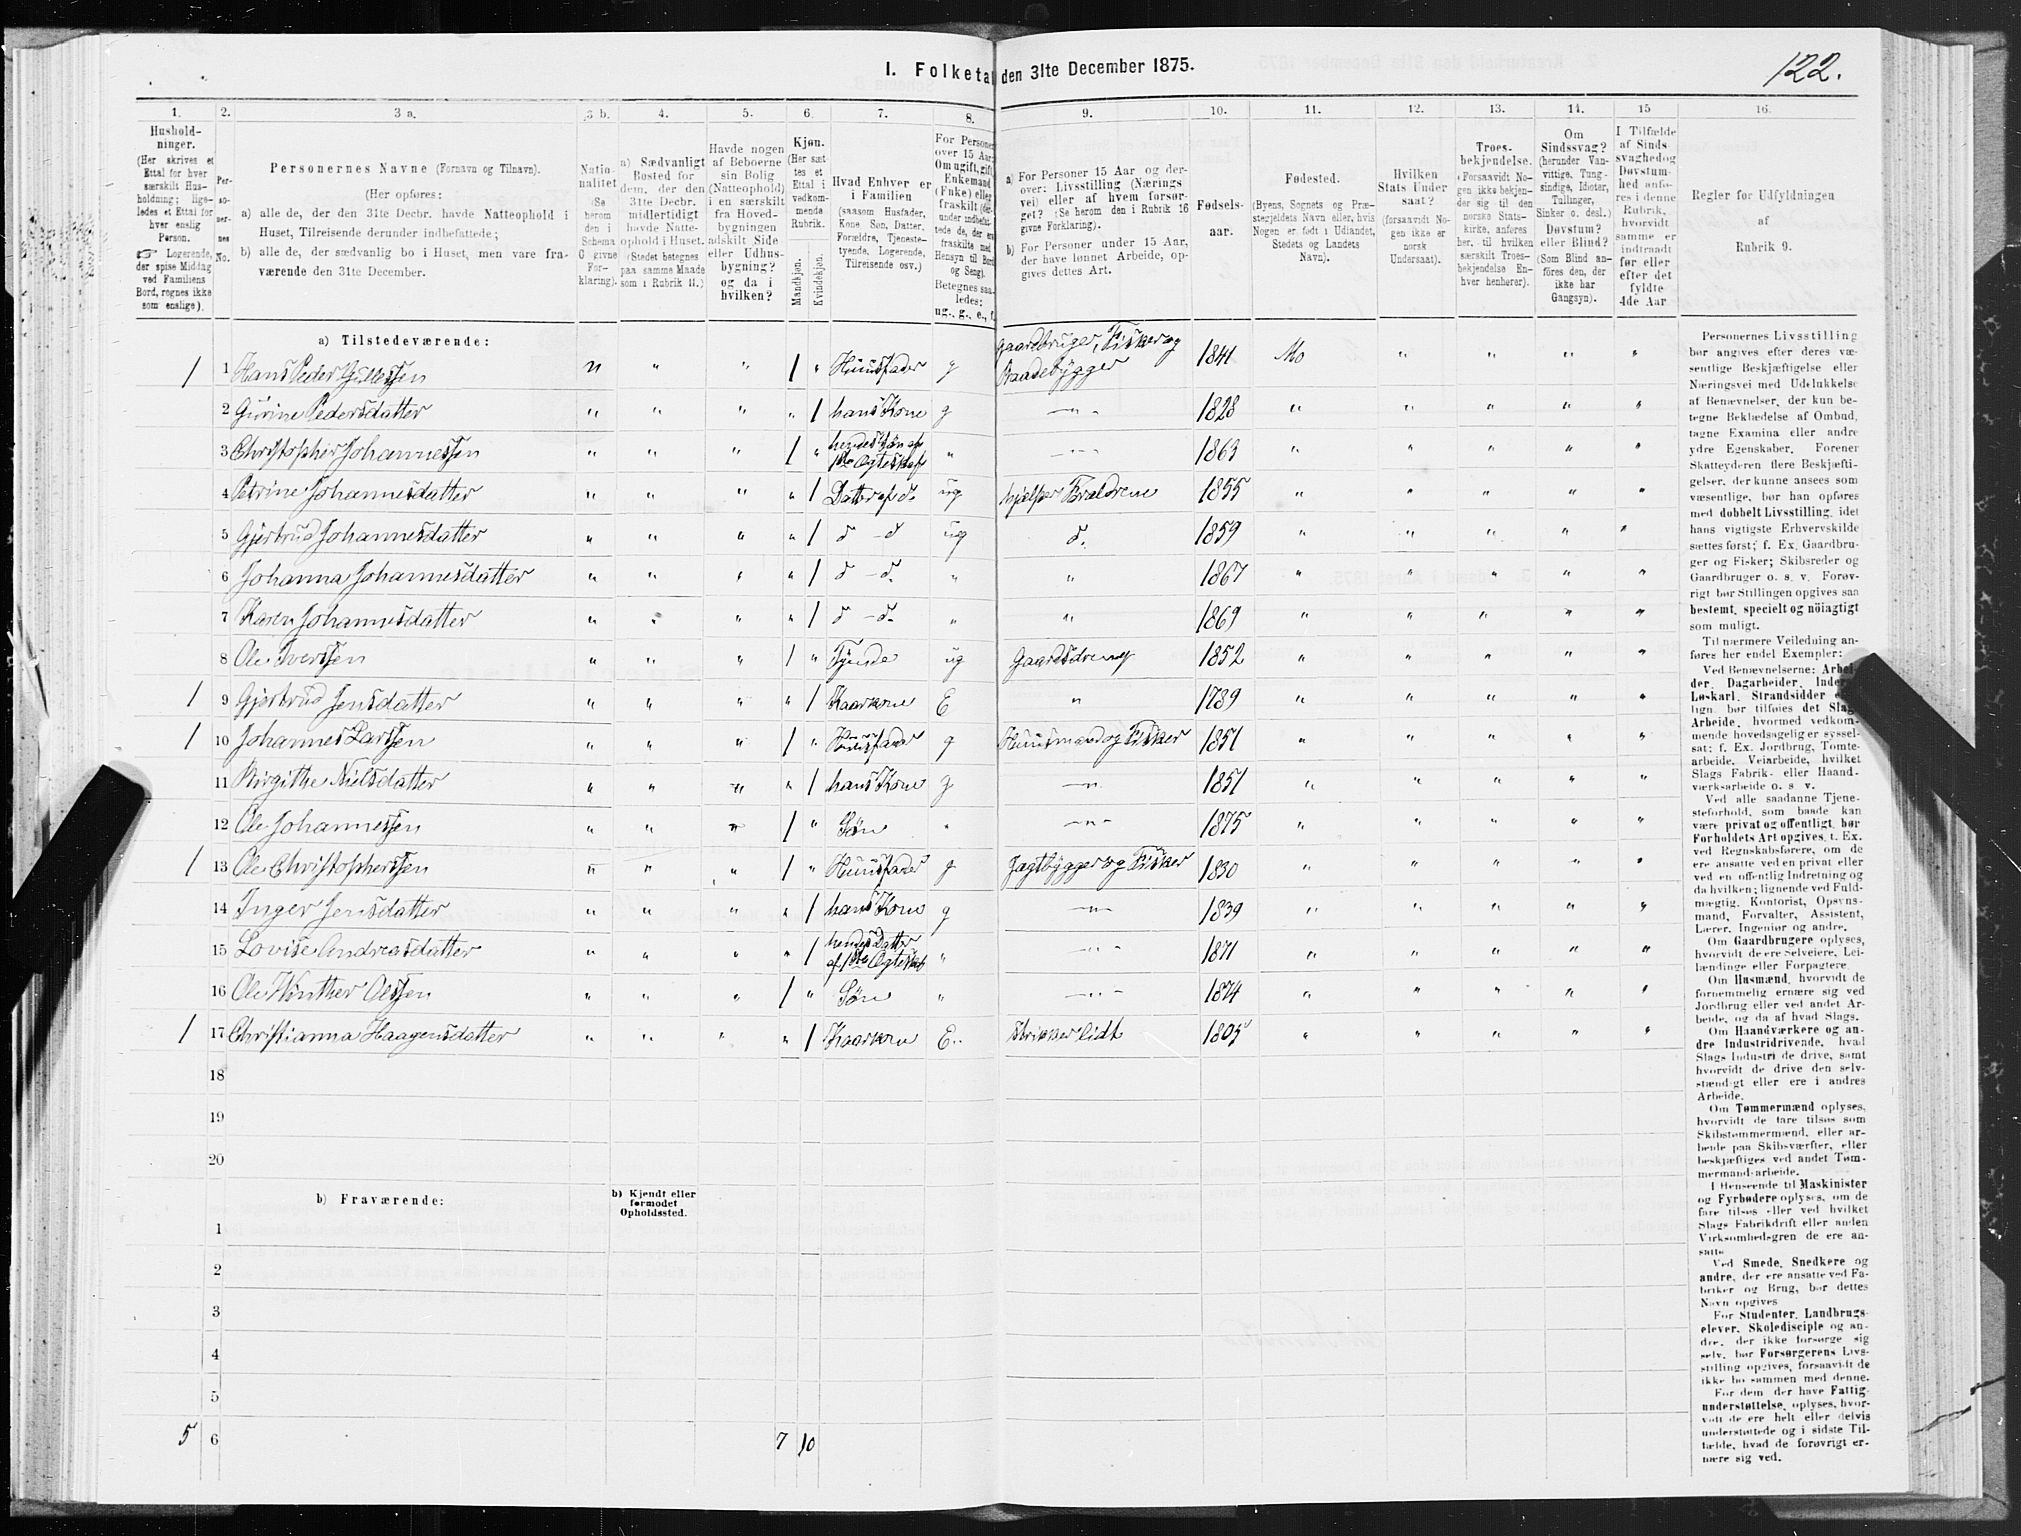 122.
I. Folketal den 31te December 1875.
1. 2. 3 a. 3 b. 4. 5. 6. 7. 8. 9. 10. 11. 12. 13. 14. 15 16.
Husholdninger.
(Her skrives et Ettal for hver særskilt Husholdning; ligeledes et Ettal for hver enslig Person.
Logerende, der spise Middag ved Familiens Bord, regnes ikke som enslige).
Personernes No.
Personernes Navne (Fornavn og Tilnavn).
(Her opføres:
a) alle de, der den 31te Decbr. havde Natteophold i Huset, Tilreisende derunder indbefattede;
b) alle de, der sædvanlig bo i Huset, men vare fraværende den 31te December.
Nationalitet (Se herom den i Schema G givne Forklaring).
a) Sædvanligt Bosted for dem, der den 31te Decbr. midlertidigt havde Natteophold i Huset. (Stedet betegnes paa samme Maade som i Rubrik 11.)
Havde nogen af Beboerne sin Bolig (Natteophold) i en særskilt fra Hovedbygningen adskilt Side- eller Udhusbygning? og da i hvilken?
Kjøn.
(Her sættes et Ettal i vedkommende Rubrik.
Mandkjøn. Kvindekjøn.
Hvad Enhver er i Familien
(saasom Husfader, Kone, Søn, Datter, Forældre, Tjenestetyende, Logerende, Tilreisende osv.)
For Personer over 15 Aar: Om ugift, gift, Enkemand (Enke) eller fraskilt (derunder indbefattede de, der ere fraskilte med Hensyn til Bord og Seng).
Betegnes saaledes: ug., g., e., f.
a) For Personer 15 Aar og derover: Livsstilling (Næringsvei) eller af hvem forsørget? (Se herom de i Rubrik 16 givne Forklaring).
b) For Personer under 15 Aar, der have lønnet Arbeide, opgives dettes Art.
Fødselsaar.
Fødested.
(Byens, Sognets og Præstegjeldets Navn eller, hvis Nogen er født i Udlandet, Stedets og Landets Navn).
Hvilken Stats Undersaat?
(forsaavidt Nogen ikke er norsk Undersaat).
Troesbekjendelse.
(Forsaavidt Nogen ikke bekjender sig til den norske Statskirke, anføres her, til hvilken særskilt Troesbekjendelse Enhver henhører).
Om Sindssvag? (herunder Vanvittige, Tungsindige, Idioter, Tullinger, Sinker o. desl.) Døvstum? eller Blind? (Som Blind anføres den, der ikke har Gangsyn).
I Tilfælde af Sindssvaghed og Døvstumhed anføres i denne Rubrik, hvorvidt samme er indtraadt før eller efter det fyldte 4de Aar
Regler for Udfyldningen
af
Rubrik 9.
a) Tilstedeværende:
1 1 Hans Peder n " " 1 " Huusfader g Gaardbruger, Fisker og Baadebygger 1841 Mo " " " "
2 Gurine Pedersdatter " " " " 1 hans Kone g —"— 1828 " " " " "
3 Christopher Johannessen " " " 1 " hendes Søn af 1ste Ægteskab " —"— 1863 " " " " "
4 Petrine Johannesdatter " " " " 1 Datter af d. ug hjelper Forældrene 1855 " " " " "
5 Gjertrud Johannesdatter " " " " 1 d – d ug d. 1859 " " " " "
6 Johanna Johannesdatter " " " " 1 d – d. " " 1867 " " " " "
7 Karen Johannesdatter " " " " 1 d – d. " " 1869 " " " " "
8 Ole Iverssen " " " 1 " Tjende ug Gaardsdreng 1852 " " " " "
1 9 Gjertrud Jensdatter " " " " 1 Kaarkone E " 1789 " " " " "
1 10 Johannes Larssen " " " 1 " Huusfader g Huusmand og Fisker 1851 " " " " "
11 Birgithe Nielsdatter " " " " 1 hans Kone g —"— 1851 " " " " "
12 Ole Johannessen " " " 1 " Søn " —"— 1875 " " " " "
1 13 Ole Christopherssen " " " 1 " Huusfader g Jagtbygger og Fisker 1830 " " " " "
14 Inger Jensdatter " " " " 1 hans Kone g —"— 1839 " " " " "
15 Lovise Andreasdatter " " " " 1 hendes Datter af 1ste Ægteskab " —"— 1871 " " " " "
16 Ole Winther Olssen " " " 1 " Søn " —"— 1874 " " " " "
1 17 Christianna Haagensdatter " " " " 1 Kaarkone E. strikker lidt 1805 " " " " "
18
19
20
b) Fraværende:
b) Kjendt eller formodet Opholdssted.
1
2
3
4
5
5 6 7 10
Personernes Livsstilling
bør angives efter deres væ-
sentlige Beskjæftigelse eller
Næringsvei med Udelukkelse
af Benævnelser, der kun be-
tegne Beklædelse af Ombud,
tagne Examina eller andre
ydre Egenskaber. Forener
Skatteyderen flere Beskjæfti-
gelser, der kunne ansees som
væsentlige, bør han opføres
med dobbelt Livsstilling, idet
hans vigtigste Erhvervskilde
sættes først; f. Ex. Gaardbru-
ger og Fisker; Skibsreder og
Gaardbruger o. s. v. Forøv-
rigt bør Stillingen opgives saa
bestemt, specielt og nöiagtigt
som muligt.
Til nærmere Veiledning an-
føres her endel Exempler:
Ved Benævnelserne: Arbei-
der, Dagarbeider, Inder
Løskarl, Strandsidder
lign. bør tilføies det Slag
Arbeide, hvormed vedkom-
mende hovedsagelig er syssel-
sat; f. Ex. Jordbrug, Tomte-
arbeide, Veiarbeide, hvilket
Slags Fabrik- eller Haand-
værksarbeide o. s. v.
Ved alle saadanne Tjene-
steforhold, som baade kan
være privat og offentligt, bør
Forholdets Art opgives, t. Ex.
ved Regnskabsførere, om de
ere ansatte ved en privat eller
ved en offentlig Indretning og
da hvilken; lignende ved Fuld-
mægtig, Kontorist, Opsyns-
mand, Forvalter, Assistent,
Lærer, Ingeniør og andre.
Om Gaardbrugere oplyses,
hvorvidt de ere Selveiere, Lei-
lændinge eller Forpagtere.
Om Husmænd, hvorvidt de
fornemmelig ernære sig ved
Jordbrug eller ved andet Ar-
beide, og da af hvad Slags.
Om Haandværkere og an-
dre Industridrivende, hvad
Slags Industri de drive, samt
hvorvidt de drive den selv-
stændigt eller ere i andres
Arbeide.
Om Tømmermænd oplyses,
hvorvidt de fare tilsøs som
Skibstømmermænd, eller ar-
beide paa Skibsværfter, eller
beskjæftiges ved andet Tøm-
mermandarbeide.
I Henseende til Maskinister
og Fyrbødere oplyses, om de
fare tilsøs eller ved hvilket
Slags Fabrikdrift eller anden
Virksomhedsgren de ere an-
satte
Ved Smede, Snedkere og
andre, der ere ansatte ved Fa-
briker og Brug, bør dettes
Navn opgives
For Studenter, Landbrugs-
elever, Skoledisciple og an-
dre, der ikke forsørge sig
selv, bør Forsørgerens Livs-
stilling opgives, forsaavidt de
ikke bo sammen med denne.
For dem, der have Fattig-
understøttelse, oplyses, hvor-
vidt de ere helt eller delvis
understøttede og i sidste Til-
fælde, hvad de forøvrigt er-
nære sig ved.